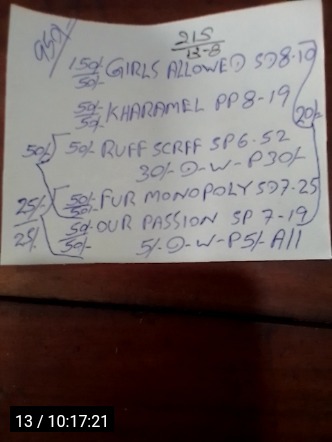 950/-
215
12-8
150/-
50/- GIRLS ALLOWED SD8-10
50/-
50/- KHARAMEL PP8-19
20/-
50/- 50/- RUFF SCRFF SP6-52
30/- D-W-P30/-
25/- 50/-
25/- 50/- FUR MONOPOLY SD7-25
50/-
50/- OUR PASSION SP 7-19
5/- D-W-P5/- All
13 / 10:17:21